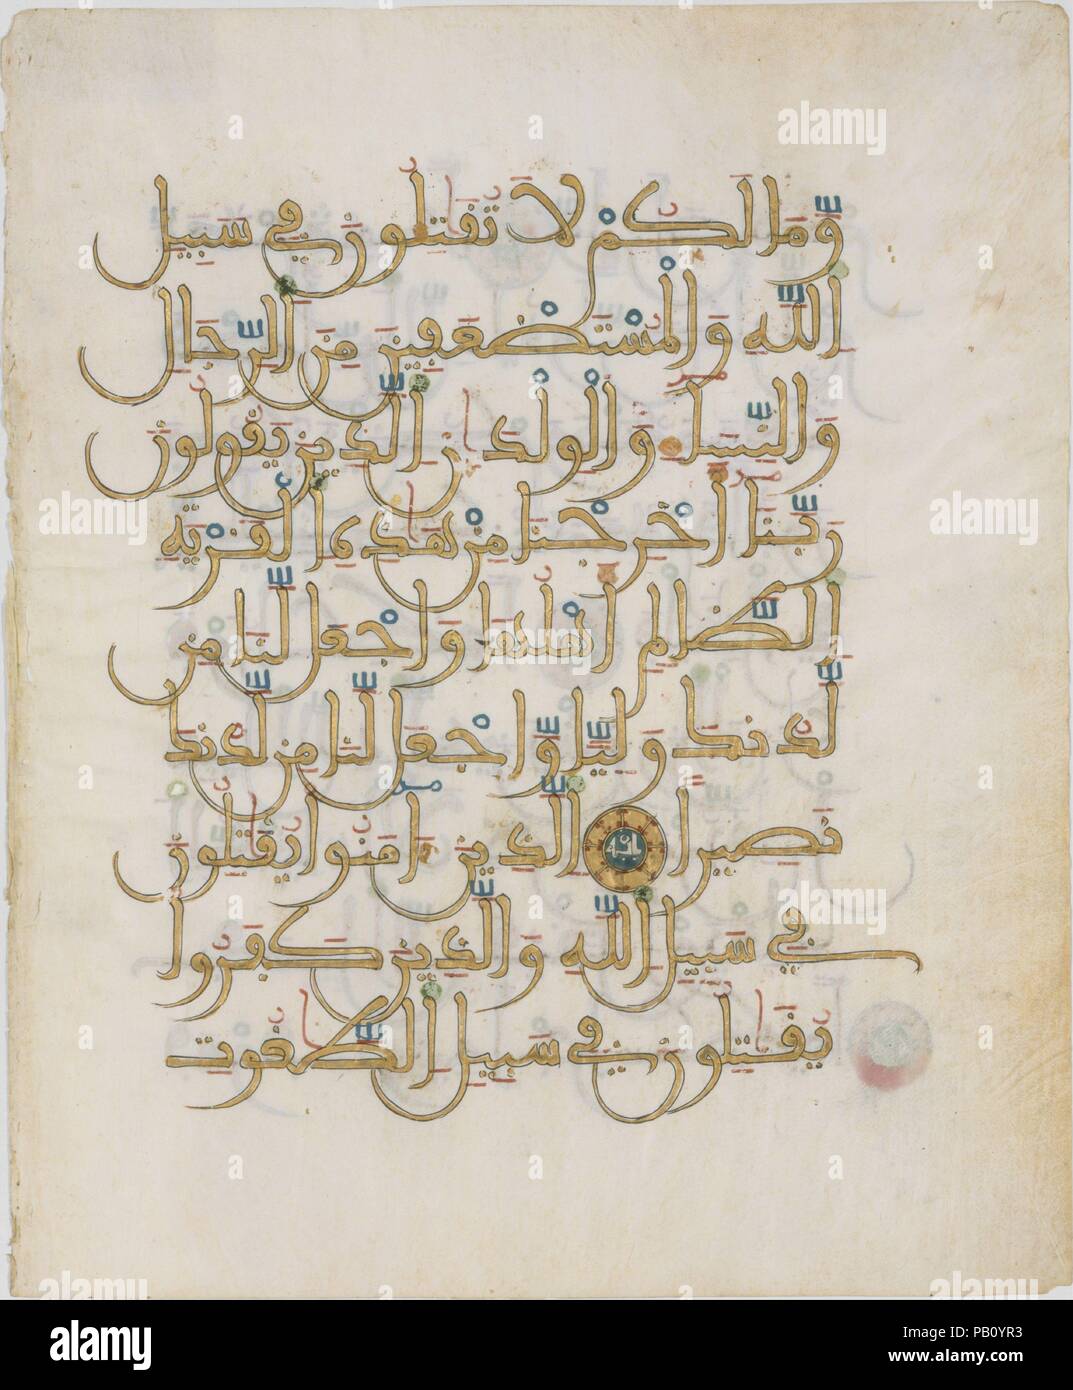 وَّمَا لَكُمْ لَا تُقَٰتِلُونَ فِي سَبِيلِ
اِ۬للَّهِ وَالْمُسْتَضْعَفِينَ مِنَ اَ۬لرِّجَالِ
وَالنِّسَآءِ وَالْوِلْدَٰنِ اِ۬لذِينَ يَقُولُونَ
رَبَّنَآ أَخْرِجْنَا مِنْ هَٰذِهِ اِ۬لْقَرْيَةِ
اِ۬لظَّالِمِ أَهْلُهَا وَاجْعَل لَّنَا مِن
لَّدُنكَ وَلِيّاً وَّاجْعَل لَّنَا مِن لَّدُنكَ
نَصِيراً اَ۬لذِينَ ءَامَنُوا يُقَٰتِلُونَ
فِي سَبِيلِ اِ۬للَّهِ وَالذِينَ كَفَرُوا
يُقَٰتِلُونَ فِي سَبِيلِ اِ۬لطَّٰغُوتِ
alamy
alamy
alamy
alamy
alamy
alamy
alamy
a
a
a
a
a
a
alamy
Image ID: PB0YR3
www.alamy.com